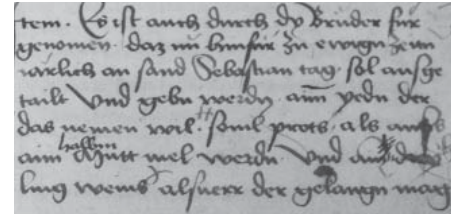 tem. Es ist auch durch dy Brüder für
genomen. daz nu hinfür zu ewign zeitn
iärlich an sand Sebastian tag. sol ausge
tailt Vnd gebn werdn aim yedn der
das nemen wil. souil prots. als aus
aim halbm Mutt mel werdn. Vnd ain
ling weins alsuerr der gelangn mag